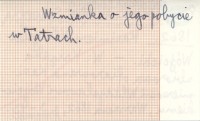 Wzmianka o jego pobycie
w Tatrach.